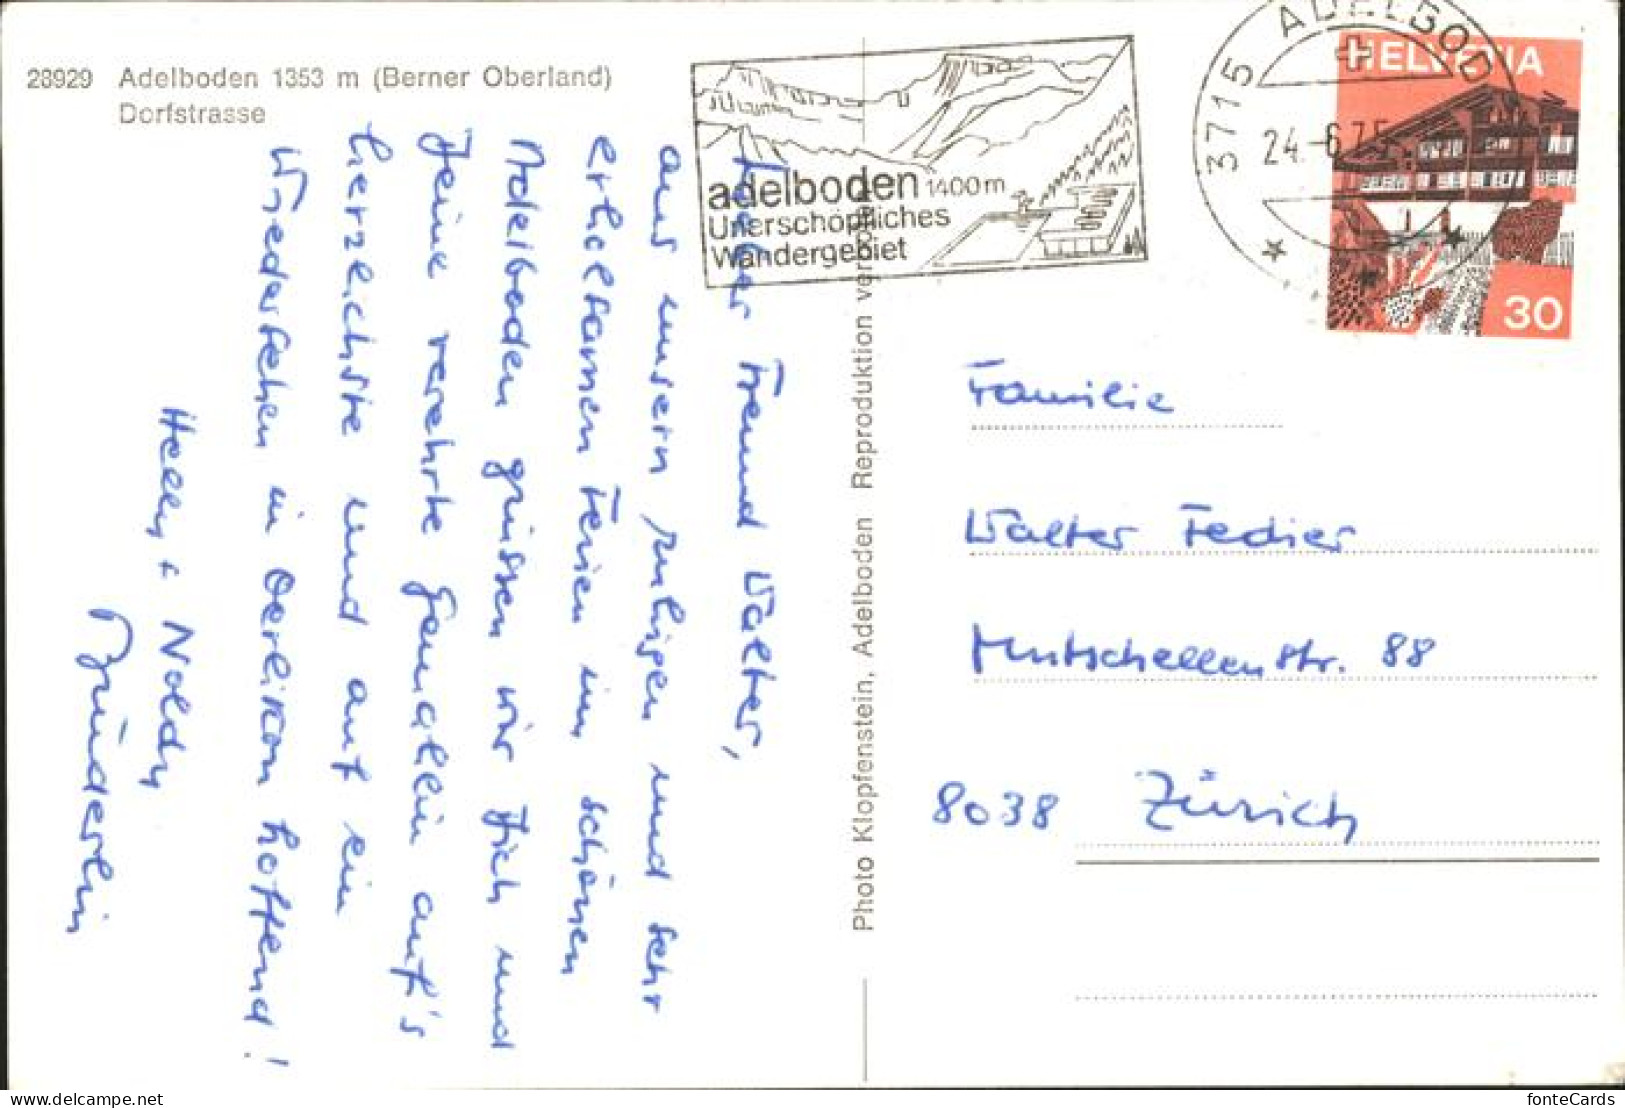 28929 Adelboden 1353 m (Berner Oberland)
Dorfstrasse
adelboden 1400m
Unerschöpfliches
Wandergebiet
3715 ADELBODEN
24.-6.75
HELVETIA
30
Lieber Freund Walter,
aus unsern ruhigen und sehr
erholsamen Ferien im schönen
Adelboden grüssen wir Dich und
Deine verehrte Gemahlin auf's
herzlichste und auf ein
Wiedersehen in Oerlikon hoffend!
Helly + Noldy
Bründerlin
Photo Klopfenstein, Adelboden Reproduktion verboten
Familie
Walter Fedier
Mutschellenstr. 88
8038 Zürich
delcampe.net
fonteCards